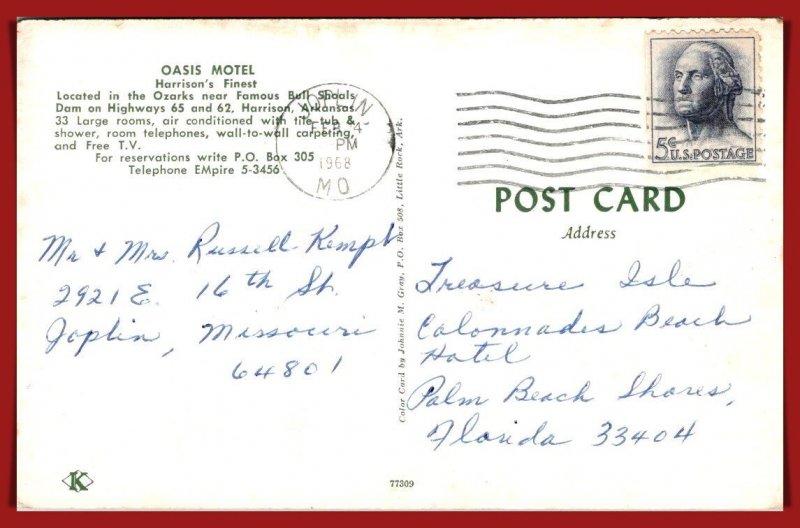 OASIS MOTEL
Harrison's Finest
Located in the Ozarks near Famous Bull Shoals
Dam on Highways 65 and 62, Harrison, Arkansas.
33 Large rooms, air conditioned with tile tub &
shower, room telephones, wall-to-wall carpeting,
and Free T.V.
For reservations write P.O. Box 305
Telephone EMpire 5-3456
JOPLIN
FEB 4
PM
1968
MO
5¢ U.S. POSTAGE
POST CARD
Address
Mr & Mrs. Russell Kempt
2921 E. 16th St.
Joplin, Missouri
64801
Color Card by Johnnie M. Gray, P.O. Box 508, Little Rock, Ark.
Treasure Isle
Colonnades Beach
Hotel
Palm Beach Shores,
Florida 33404
K
77309